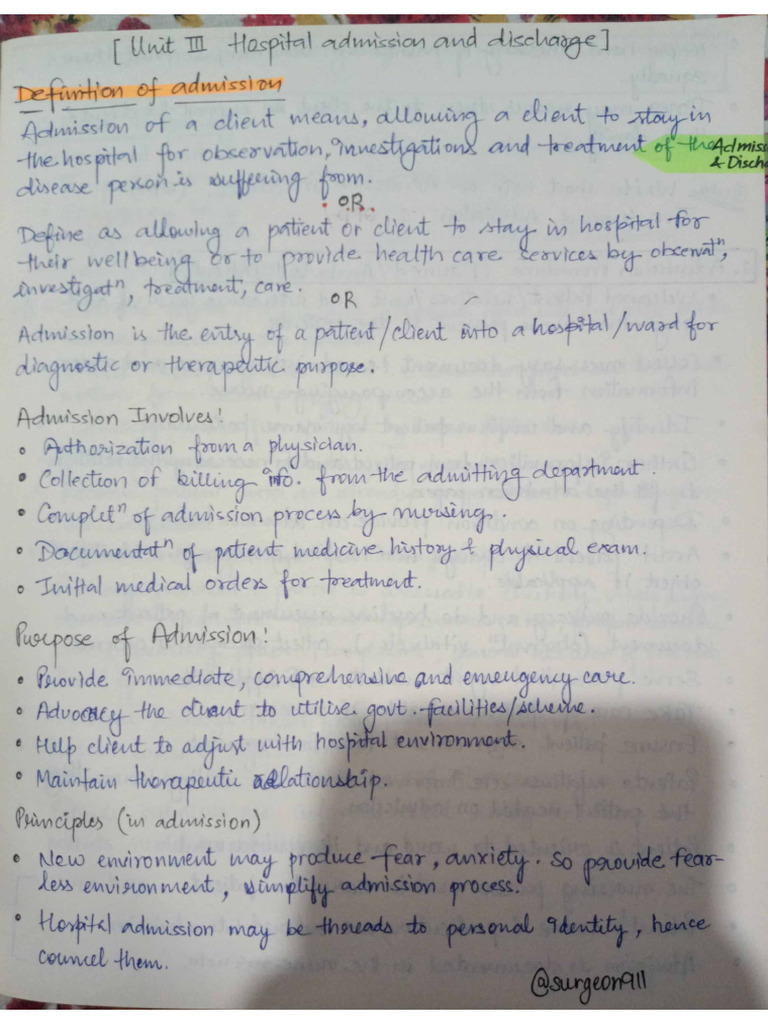 [ Unit III Hospital admission and discharge ]
Definition of admission
Admission of a client means, allowing a client to stay in
the hospital for observation, investigations and treatment of the
Admiss
& Disch
disease person is suffering from.
OR
Define as allowing a patient or client to stay in hospital for
their wellbeing or to provide health care services by observatⁿ,
investigatⁿ, treatment, care.
OR
Admission is the entry of a patient/client into a hospital/ward for
diagnostic or therapeutic purpose.
Admission Involves!
• Authorization from a physician.
• Collection of billing info. from the admitting department.
• Completⁿ of admission process by nursing.
• Documentatⁿ of patient medicine history & physical exam.
• Initial medical orders for treatment.
Purpose of Admission!
• Provide immediate, comprehensive and emergency care.
• Advocacy the client to utilise govt. facilities/scheme.
• Help client to adjust with hospital environment.
• Maintain therapeutic relationship.
Principles (in admission)
• New environment may produce fear, anxiety. So provide fear-
less environment, simplify admission process.
• Hospital admission may be threads to personal identity, hence
councel them.
@surgeon911